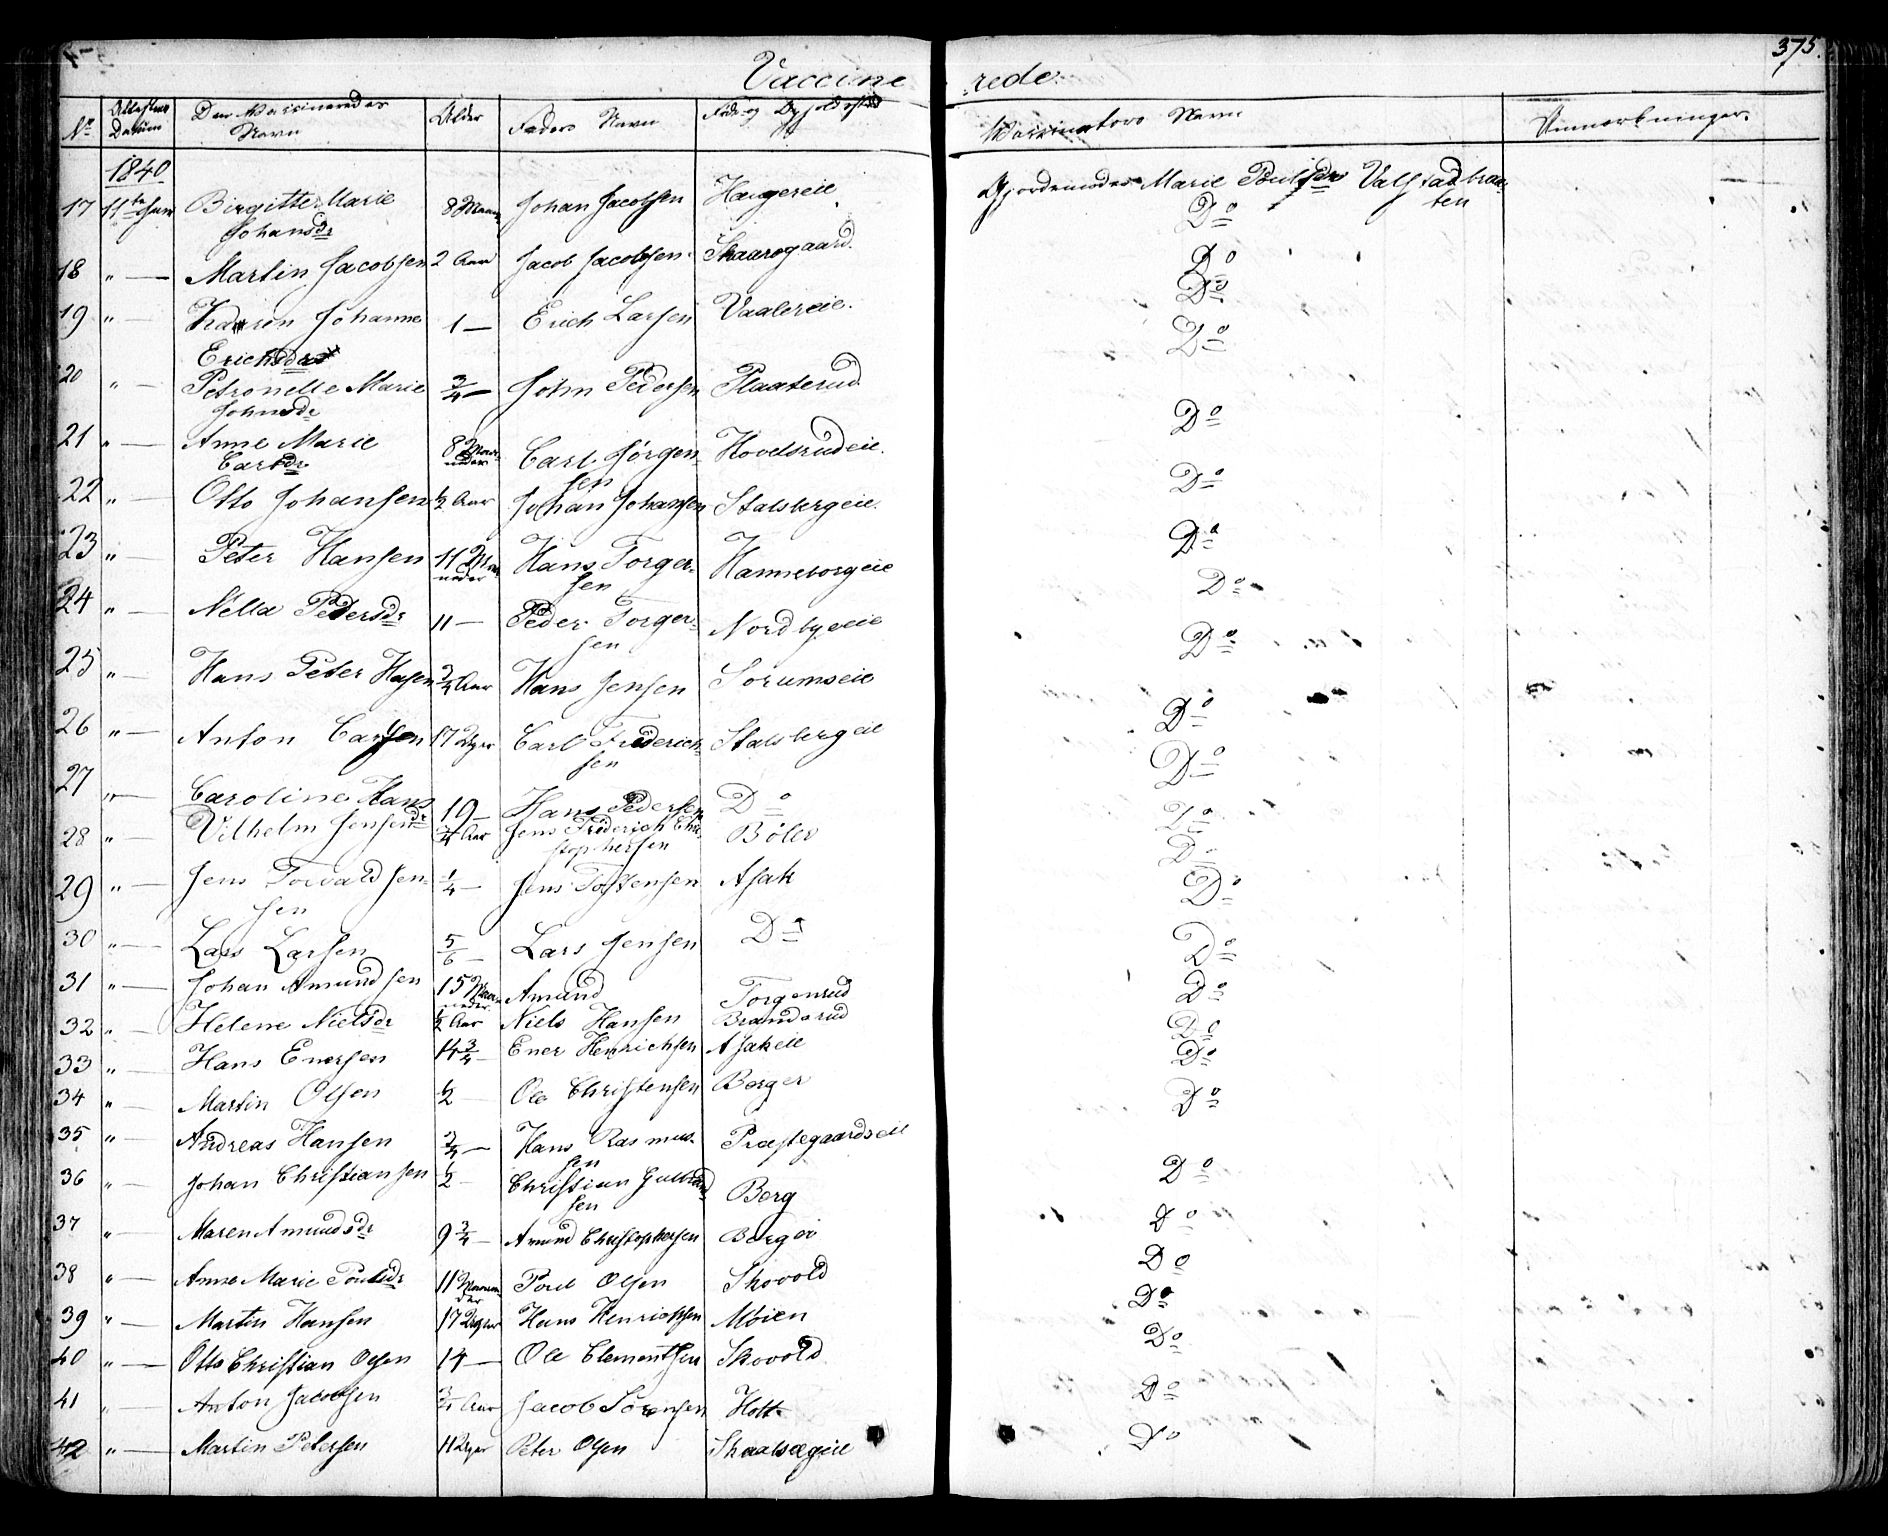 375.
Vaccinerede
No Attestens Datum Den Vaccineredes Navn Alder Faders Navn Føde og Opholdssted Vaccinateurs Navn Anmærkninger
1840
17 11te Juni Birgitte Marie Johansdr 8 Maan Johan Jacobsen Haugereie Gjordemoder Marie Poulsdr Valstadbraaten
18 " — Martin Jacobsen 2 Aar Jacob Jacobsen Skaarsgaard Do
19 " — Karen Johanne Erichsdr 1 — Erich Larsen Vaalereie Do
20 " — Petronelle Marie Johnsdr 3/4 — John Pedersen Plaaterud Do
21 " — Anne Marie Carlsdr 8 Maaneder Carl Jørgensen Hovelsrudeie Do
22 " — Otto Johansen 1/2 Aar Johan Johansen Stalsbergeie Do
23 " — Peter Hansen 11 Maaneder Hans Torgersen Hanneborgeie Do
24 " — Nella Pedersdr 11 — Peder Torgersen Nordbyeie Do
25 " — Hans Peter Hansen 3/4 Aar Hans Jensen Sorumseie Do
26 " — Anton Carlsen 17 Uger Carl Frederichsen Stalsbergeie Do
27 " — Caroline Hansdr 19 — Hans Pedersen Do Do
28 " — Vilhelm Jensen 3/4 Aar Jens Friderich Christophersen Bøler Do
29 " — Jens Torvald Jensen 1/4 — Jens Tostensen Asak Do
30 " — Lars Larsen 5/6 — Lars Jensen Do Do
31 " — Johan Amundsen 15 Maaneder Amund Torgenrud Do
32 " — Helene Nielsdr 1/2 Aar Niels Hansen Branderud Do
33 " — Hans Enersen 14 3/4 — Ener Henrichsen Asakeie Do
34 " — Martin Olsen 1/2 — Ole Christensen Berger Do
35 " — Andreas Hansen 3/4 — Hans Rasmussen Præstegaardseie Do
36 " — Johan Christiansen 1/2 — Christian Gulbrandsen Berg Do
37 " — Maren Amundsdr 9 3/4 — Amund Christophersen Berger Do
38 " — Anne Marie Poulsdr 11 Maaneder Poul Olsen Skovold Do
39 " — Martin Hansen 17 Uger Hans Henrichsen Moien Do
40 " — Otto Christian Olsen 14 — Ole Clementsen Skovold Do
41 " — Anton Jacobsen 3/4 Aar Jacob Sørensen Holt Do
42 " — Martin Petersen 11 Uger Peter Olsen Skaalsægeie Do